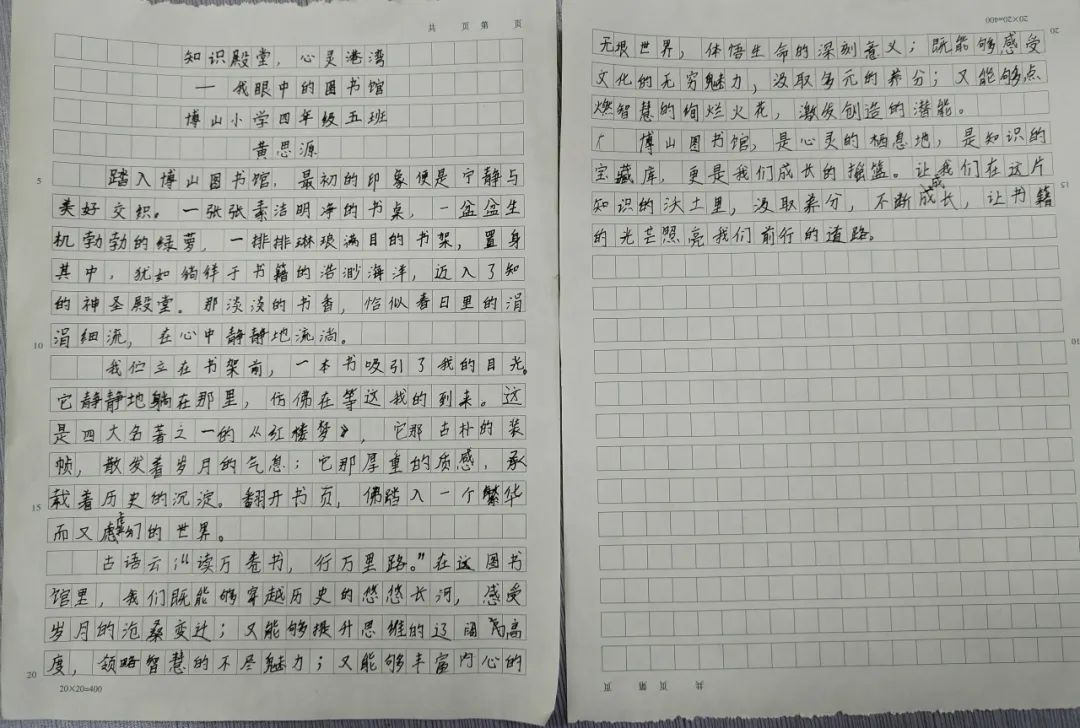 共 页 第 页
知识殿堂，心灵港湾
— 我眼中的图书馆
博山小学四年级五班
黄思源
踏入博山图书馆，最初的印象便是宁静与
美好交织。一张张素洁明净的书桌，一盆盆生
机勃勃的绿萝，一排排琳琅满目的书架，置身
其中，犹如徜徉于书籍的浩渺海洋，迈入了知
的神圣殿堂。那淡淡的书香，恰似春日里的涓
涓细流，在心中静静地流淌。
我伫立在书架前，一本书吸引了我的目光。
它静静地躺在那里，仿佛在等这我的到来。这
是四大名著之一的《红楼梦》，它那古朴的装
帧，散发着岁月的气息；它那厚重的质感，承
载着历史的沉淀。翻开书页，佛踏入一个繁华
而又虚幻的世界。
古语云：“读万卷书，行万里路。”在这图书
馆里，我们既能够穿越历史的悠悠长河，感受
岁月的沧桑变迁；又能够提升思维的辽阔高
度，领略智慧的不尽魅力；又能够丰富内心的
5
10
15
20
20×20=400
20×20=400
20
无垠世界，体悟生命的深刻意义；既能够感受
文化的无穷魅力，汲取多元的养分；又能够点
燃智慧的绚烂火花，激发创造的潜能。
博山图书馆，是心灵的栖息地，是知识的
宝藏库，更是我们成长的摇篮。让我们在这片
知识的沃土里，汲取养分，不断成长，让书籍
的光芒照亮我们前行的道路。
15
10
共 页 第 页